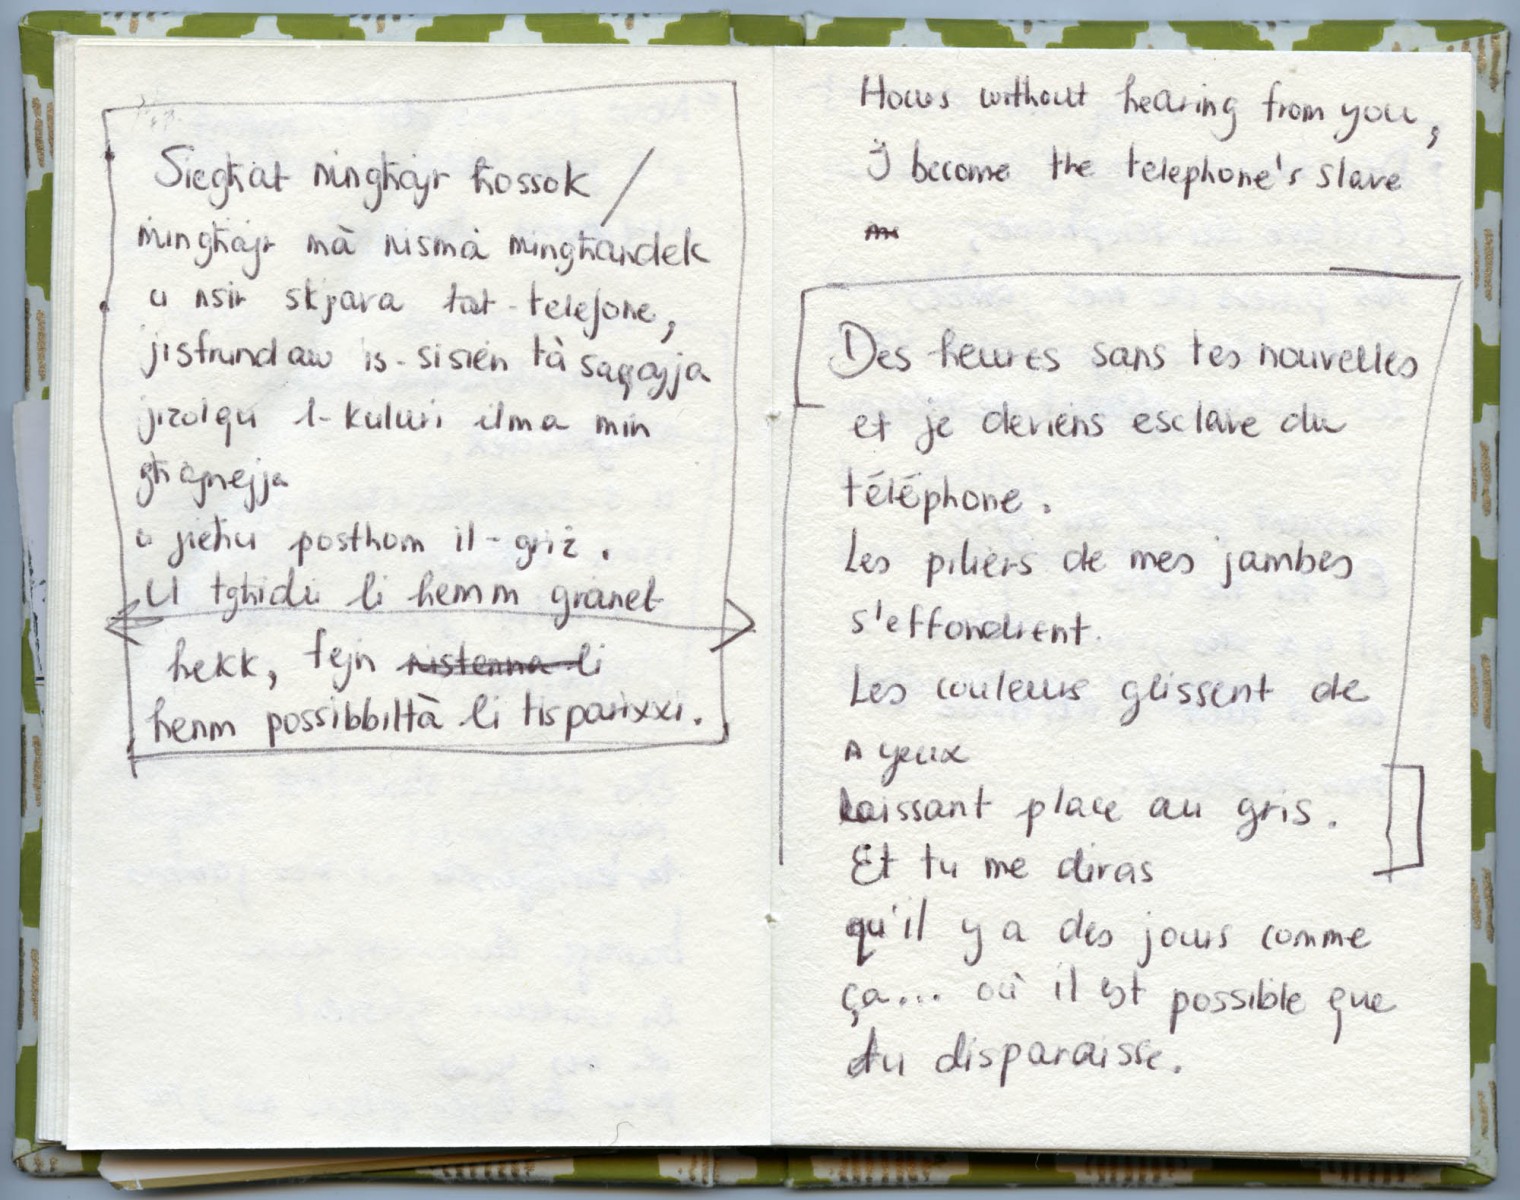 Siegħat mingħajr ħossok /
mingħajr mà nismà mingħandek
u nsir skjava tat-telefone,
jisfrundaw is-sisien tà saqajja
jizolqu l-kuluri ilma min
għajnejja
u jieħu posthom il-griż.
U tgħidli li hemm ġranet
hekk, fejn nistenna li
hemm possibbiltà li tisparixxi.
Hours without hearing from you,
I become the telephone's slave
Des heures sans tes nouvelles
et je deviens esclave du
téléphone.
Les piliers de mes jambes
s'effondrent.
Les couleurs glissent de
yeux
laissant place au gris.
Et tu me diras
qu'il y a des jours comme
ça... où il est possible que
tu disparaisse.